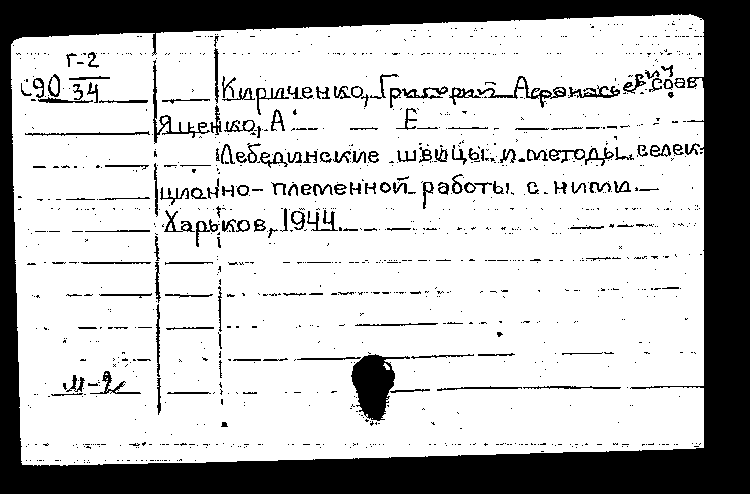 Г-2
С90 34
Кириченко, Григорий Афанасьевич соавт
Ященко, А Е
Лебединские швицы и методы селек-
ционно-племенной работы с ними.
Харьков, 1944.
М-2